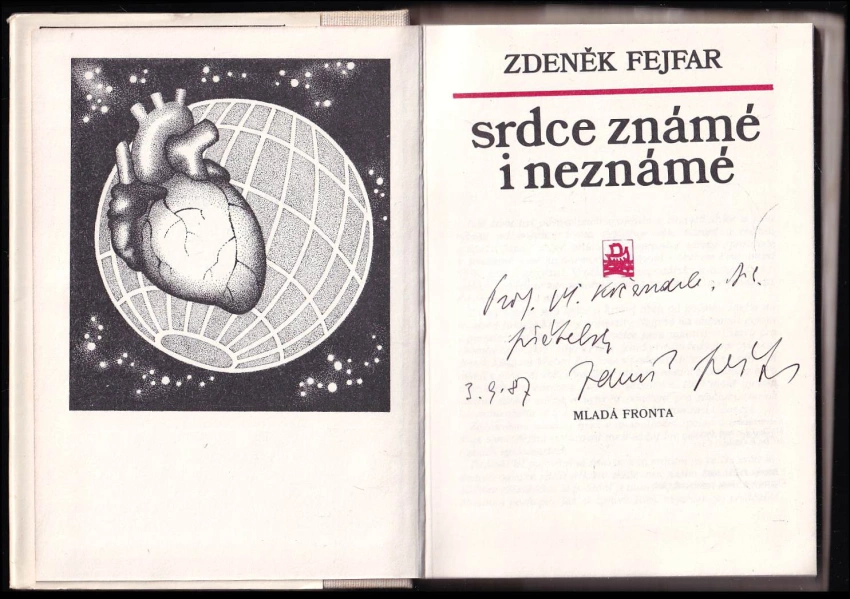 ZDENĚK FEJFAR
srdce známé
i neznámé
Prof. M.
přátelsky
3. 9. 87 Zdeněk Fejfar
MLADÁ FRONTA